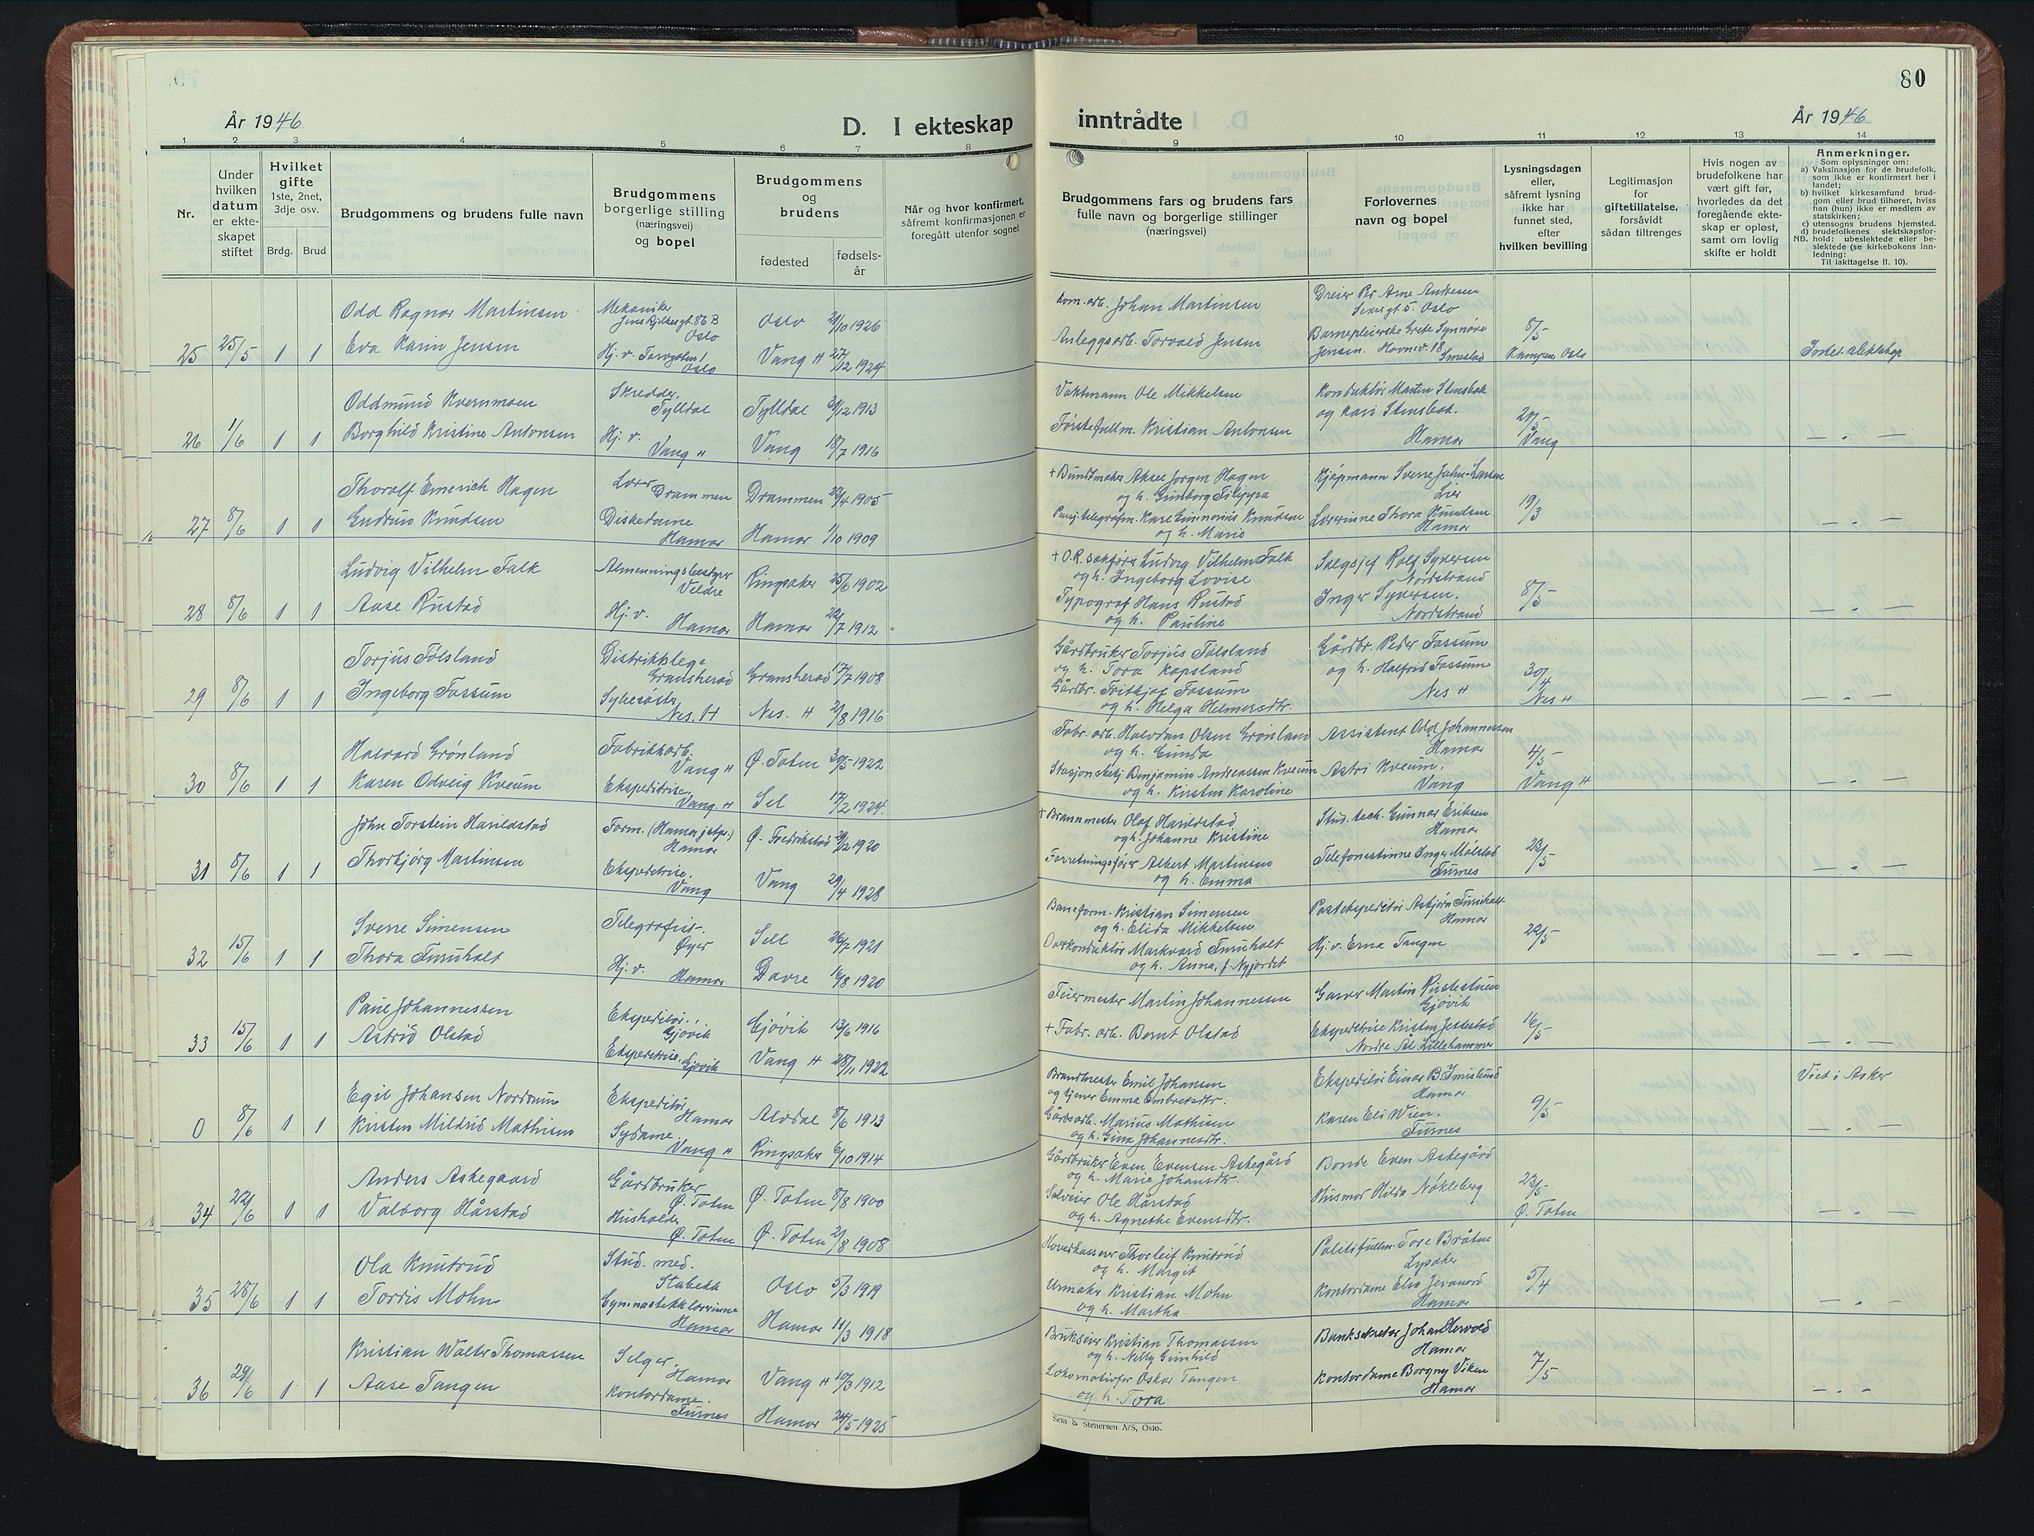 80
År 1946
D. I ekteskap inntrådte
År 1946
1 2 3 4 5 6 7 8 9 10 11 12 13 14
Nr.
Under hvilken datum er ekteskapet stiftet
Hvilket gifte 1ste, 2net, 3dje osv.
Brdg. Brud
Brudgommens og brudens fulle navn
Brudgommens borgerlige stilling (næringsvei) og bopel
Brudgommens og brudens
fødested
fødselsår
Når og hvor konfirmert, såfremt konfirmasjonen er foregått utenfor sognet
Brudgommens fars og brudens fars fulle navn og borgerlige stillinger (næringsvei)
Forlovernes navn og bopel
Lysningsdagen eller, såfremt lysning ikke har funnet sted, efter hvilken bevilling
Legitimasjon for giftetillatelse, forsåvidt sådan tiltrenges
Hvis nogen av brudefolkene har vært gift før, hvorledes da det foregående ekteskap er opløst, samt om lovlig skifte er holdt
Anmerkninger.
Som oplysninger om:
a) Vaksinasjon for de brudefolk, som ikke er konfirmert her i landet;
b) hvilket kirkesamfund brudgom eller brud tilhører, hviss han (hun) ikke er medlem av statskirken;
c) utensogns brudens hjemsted.
d) brudefolkenes slektskapsforhold: ubeslektede eller beslektede (se kirkebokens innledning:
NB.
Til iakttagelse II. 10).
25 25/5 1 1
Odd Ragnar Martinsen
Eva Karin Jensen
Mekaniker
Oslo
Hj. v.
Oslo
Oslo 1926
Vang H 27/12 1924
Johan Martinsen
Anleggsarb. Torvald Jensen
Dreier Per Arne Andresen
Oslo
Barnepleierske Grete Synnøve
Jensen. Havnev. 18
8/5
Kampen, Oslo
26 1/6 1 1
Oddmund Kvernmoen
Borghild Kristine Antonsen
Skredder,
Tylldal
Hj. v.
Vang H
Tylldal 1913
Vang 18/7 1916
Vaktmann Ole Mikkelsen
Førstefullm. Kristian Antonsen
Konduktør Martin Stensbak
og Kari Stensbak.
Hamar
Vang
— " —
27 8/6 1 1
Thoralf Emerich Hagen
Gudrun Knudsen
Lærer
Drammen
Diskedame
Hamar
Drammen 1905
Hamar 1/10 1909
+ Bundtmaker Aksel Jørgen Hagen
og h. Gunborg Filippa
og h. Marie
Kjøpmann Sverre Jahn-Larsen
Lier
Lærerinne Thora Knudsen
Hamar
19/3
— " —
28 8/6 1 1
Ludvig Vilhelm Falk
Aase Rustad
Almenningsbestyrer
Veldre
Hj. v.
Hamar
Ringsaker 25/6 1902
Hamar 1912
+ O.R.sakfører Ludvig Vilhelm Falk
og h. Ingeborg Lovise
Typograf Hans Rustad
og h. Pauline
Salgsjef Rolf Syversen
Nordstrand
Inger Syversen.
Nordstrand
8/5
— " —
29 8/6 1 1
Torjus Følsland
Ingeborg Fossum
Distriktslege
Gransherad
Nes. H
Gransherad 17/7 1908
Nes. H 1916
Gårdbruker Torjus Følsland
og h. Tora Kapsland
Gårdbr. Fritjof Fossum
og h. Helga Helmersdtr.
Gårdbr. Peder Fossum
og h. Halfrid Fossum
Nes H
30/4
Nes H
— " —
30 8/6 1 1
Halvard Grønland
Karen Odveig Kveum
Fabrikkarb.
Vang H
Ekspeditrise.
Vang. H
Ø. Toten 30/5 1922
Sel 17/2 1924.
Fabr. arb. Halvdan Olsen Grønland
og h. Gunda
Benjamin Andreassen Kveum
og h. Kirsten Karoline
Assistent Odd Johannessen
Hamar
Astri Kveum.
Vang
4/5
Vang H
31 8/6 1 1
John Torstein Harildstad
Thorbjørg Martinsen
Form. (Hamar jstøp.)
Hamar
Ekspeditrise.
Vang
Ø. Fredrikstad 1920
Vang 29/4 1928
+ Brannmester Olaf Harildstad
og h. Johanne Kristine
Forretningsfører Albert Martinsen
og h. Emma
Stud. tech. Gunnar Eriksen
Hamar
Telefonistinne Inger Mølstad
Furnes
23/5
— " —
32 15/6 1 1
Sverre Simensen
Thora Furuholt
Telegrafist.
Øyer
Hj. v.
Hamar
Sell 26/7 1921
Dovre 1920
Baneform. Kristian Simensen
og h. Elida Mikkelsen
Overkonduktør Markvard Furuholt
og h. Anna, f. Nyjordet
Postekspeditør Asbjørn Furuholt
Hamar
Hj. v. Erna Tangen
22/5
— " —
33 15/6 1 1
Paul Johannessen
Astrid Olstad
Ekspeditør.
Gjøvik
Ekspeditrise.
Gjøvik
Gjøvik 13/6 1916
Vang H 28/11 1922
Fyrmester Martin Johannessen
+ Fabr. arb. Bernt Olstad
Garver Martin Rustestuen
Gjøvik
Ekspeditrise Kristen Jettestad
Nordre Ål. Lillehammer
16/5
— " —
0 8/6 1 1
Egil Johansen Nordrum
Kirsten Mildrid Mathisen
Ekspeditør
Hamar
Sydame
Vang H
Alvdal 8/6 1913
Ringsaker 6/10 1914
Brandmester Emil Johansen
Emma Embretsdtr.
Gårdsarb. Marius Mathisen
og h. Gina Johannesdtr.
Ekspeditør Einar B. Imislund
Hamar
Karen Eli Wien.
Furnes
9/5
Viet i Asker
— " —
34 22/6 1 1
Anders Askegaard
Valborg Hårstad
Gårdbruker
Ø. Toten
Husholder
Ø. Toten
Ø. Toten 8/8 1900
Ø. Toten 1908
Gårdbruker Even Evensen Askegård
og h. Marie Johansdtr.
Selveier Ole Hårstad
og h. Agnethe Evensdtr.
Bonde Even Askegård
Husmor Hilda Nøkleberg
23/5
Ø. Toten
— " —
35 28/6 1 1
Ola Knutrud
Torris Mohn
Stud. med.
Stabekk
Gymnastikklærerinne
Hamar
Oslo 5/3 1919
Hamar 11/3 1918
Hovedkasserer Thorleif Knutrud
og h. Margit
Urmaker Kristian Mohn
og h. Martha
Politifullm. Tore Bråten
Lysaker
Kontordame Elsa Jevanord
Hamar
5/4
— " —
36 29/6 1 1
Kristian Walter Thomassen
Aase Tangen
Selger
Hamar
Kontordame.
Furnes
Vang H 10/3 1912
Hamar 24/5 1925
Brukseier Kristian Thomassen
og h. Nelly Gunhild
Lokomotivfør Oskar Tangen
og h. Tora
Banksekretær Johan Hervold
Hamar
Kontordame Borgny Viken
Hamar
7/5
— " —
Sem & Stenersen A/S, Oslo.